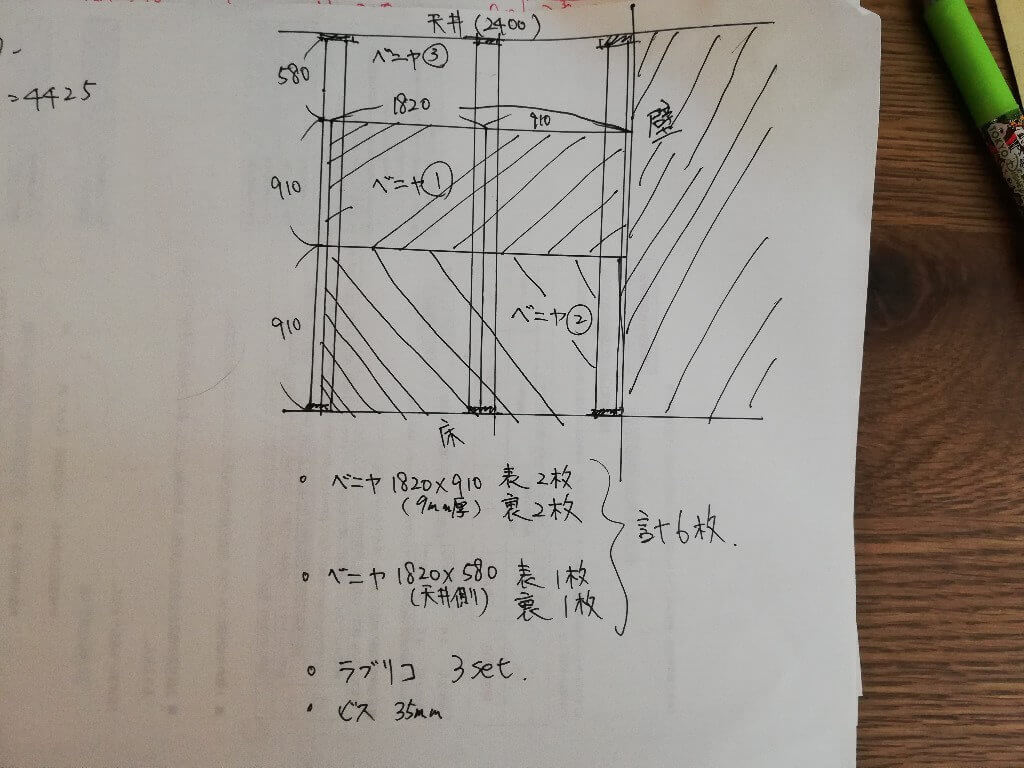 =4425
天井(2400)
ベニヤ③
580
1820
910
壁
910
ベニヤ①
910
ベニヤ②
床
・ベニヤ 1820×910 表2枚
(9mm厚) 裏2枚
計6枚.
・ベニヤ 1820×580 表1枚
(天井側) 裏1枚
・ラブリコ 3set.
・ビス 35mm